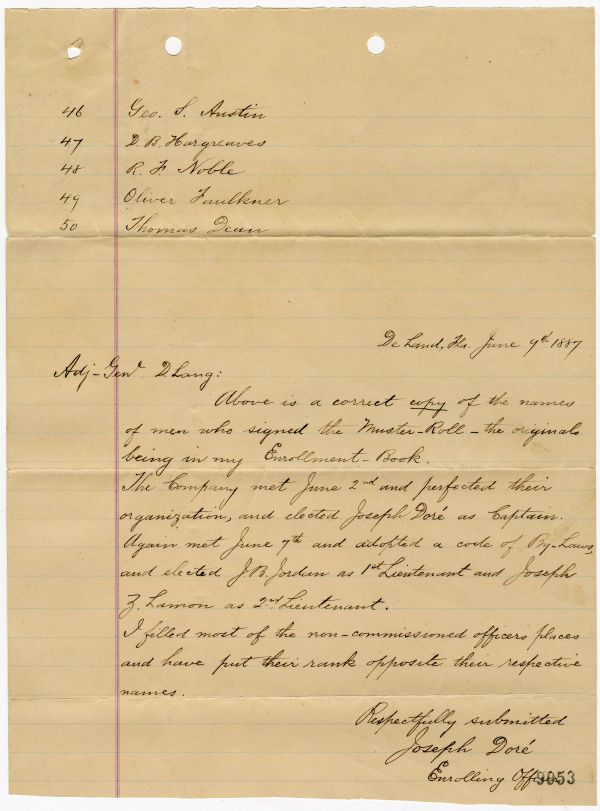 46 Geo. S. Austin
47 D. B. Hargreaves
48 R. F. Noble
49 Oliver Faulkner
50 Thomas Dean
De Land, Fla. June 9th 1887
Adj-Genl. D. Lang:
Above is a correct copy of the names
of men who signed the Muster-Roll - the originals
being in my Enrollment-Book.
The Company met June 2nd and perfected their
organization, and elected Joseph Doré as Captain.
Again met June 7th and adopted a code of By-Laws,
and elected J. B. Jordan as 1st Lieutenant and Joseph
Z. Lamon as 2nd Lieutenant.
I filled most of the non-commissioned officers places
and have put their rank opposite their respective
names.
Respectfully submitted
Joseph Doré
Enrolling Officer
9053